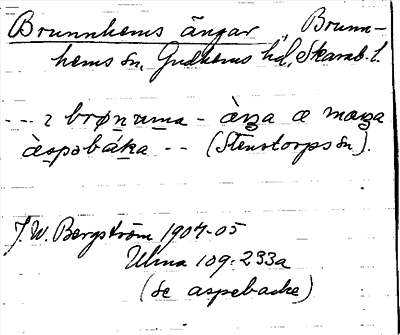 Brunnhems ängar, Brunn-
hems sn, Gudhems hd, Skarab. l.
--- ı brønuma - àŋa æ maŋa
àspəbáka -- (Stenstorps sn).
J. W. Bergström 1904-05
Ulma 109:233a
(se aspebacke)